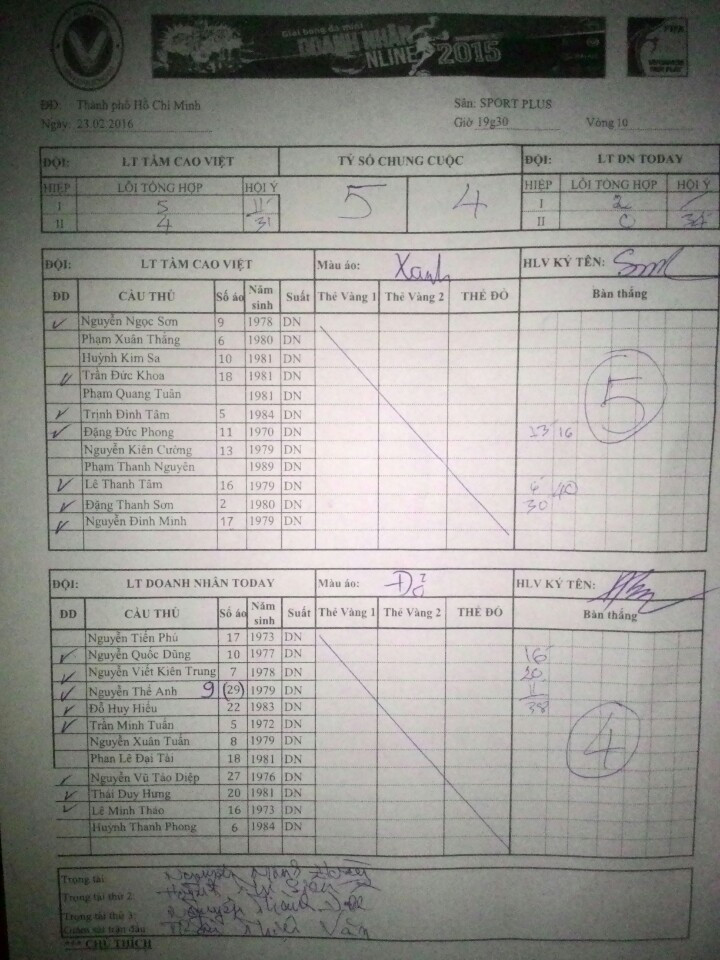 Giải bóng đá mini
DOANH NHÂN
NLINE 2015
FIFA
ĐĐ: Thành phố Hồ Chí Minh Sân: SPORT PLUS
Ngày: 23.02.2016 Giờ 19g30 Vòng 10
ĐỘI: LT TÂM CAO VIỆT TỶ SỐ CHUNG CUỘC ĐỘI: LT DN TODAY
HIỆP LỖI TỔNG HỢP HỘI Ý 5 4 HIỆP LỖI TỔNG HỢP HỘI Ý
I 5 11' I
II 4 31 II 0
ĐỘI: LT TÂM CAO VIỆT Màu áo: Xanh HLV KÝ TÊN:
ĐD CẦU THỦ Số áo Năm sinh Suất Thẻ Vàng 1 Thẻ Vàng 2 THẺ ĐỎ Bàn thắng
Nguyễn Ngọc Sơn 9 1978 DN
Phạm Xuân Thắng 6 1980 DN
Huỳnh Kim Sa 10 1981 DN
Trần Đức Khoa 18 1981 DN
Phạm Quang Tuân 1981 DN 5
Trịnh Đình Tâm 5 1984 DN
Đặng Đức Phong 11 1970 DN 13 16
Nguyễn Kiên Cường 13 1979 DN
Phạm Thanh Nguyên 1989 DN
Lê Thanh Tâm 16 1979 DN 40
Đặng Thanh Sơn 2 1980 DN 30
Nguyễn Đình Minh 17 1979 DN
ĐỘI: LT DOANH NHÂN TODAY Màu áo: Đỏ HLV KÝ TÊN:
ĐD CẦU THỦ Số áo Năm sinh Suất Thẻ Vàng 1 Thẻ Vàng 2 THẺ ĐỎ Bàn thắng
Nguyễn Tiến Phú 17 1973 DN
Nguyễn Quốc Dũng 10 1977 DN 16
Nguyễn Viết Kiên Trung 7 1978 DN 20
Nguyễn Thế Anh 9 (29) 1979 DN 11
Đỗ Huy Hiếu 22 1983 DN 38
Trần Minh Tuấn 5 1972 DN
Nguyễn Xuân Tuấn 8 1979 DN 4
Phan Lê Đại Tài 18 1981 DN
Nguyễn Vũ Táo Diệp 27 1976 DN
Thái Duy Hưng 20 1981 DN
Lê Minh Thảo 16 1973 DN
Huỳnh Thanh Phong 6 1984 DN
Trọng tài: Nguyễn
Trọng tài thứ 2:
Trọng tài thứ 3: Nguyễn
Giám sát trận đấu:
*** CHÚ THÍCH